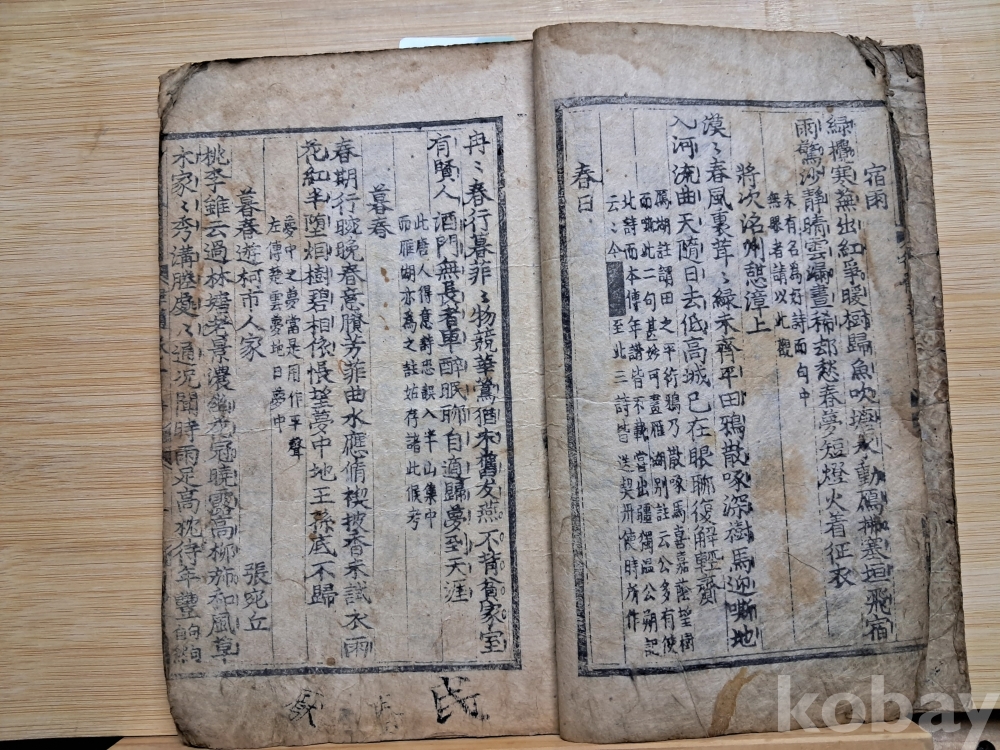 宿雨
綠攪寒蕪出紅爭暖樹歸魚吹塘水動鴈拂塞垣飛宿
雨驚沙靜晴雲漏晝稀却愁春夢短燈火着征衣
未有名爲好詩而句中
無眼者請以此觀
將次洺州憇漳上
漠〻春風裏茸〻綠未齊平田鴉散啄深樹馬迎嘶地
入河流曲天隨日去低高城已在眼聊復解輕齎
鴈湖註謂田之平衍鴉乃散啄馬喜嘉蔭望樹
而嘶此二句甚妙可畫雁湖別註云公多有使
北詩而本傳年譜皆不載嘗出疆獨溫公朔記
云〻今
至此三詩皆送契丹使時所作
春日
冉〻春行暮菲〻物競華鶯猶求舊友燕不背貧家室
有賢人酒門無長者車醉眠聊自適歸夢到天涯
此唐人得意詩恐誤入半山集中
而雁湖亦爲之註姑存諸此候考
暮春
春期行晼晚春意賸芳菲曲水應脩禊披香未試衣雨
花紅半墮烟樹碧相依悵望夢中地王孫底不歸
夢中之夢當是用作平聲
左傳楚雲夢地曰夢中
暮春遊柯市人家
張宛丘
桃李雖云過林塘景濃幽花冠曉露高柳旆和風草
木家〻秀溝塍處〻通況聞時雨足高枕待年豐
kobay